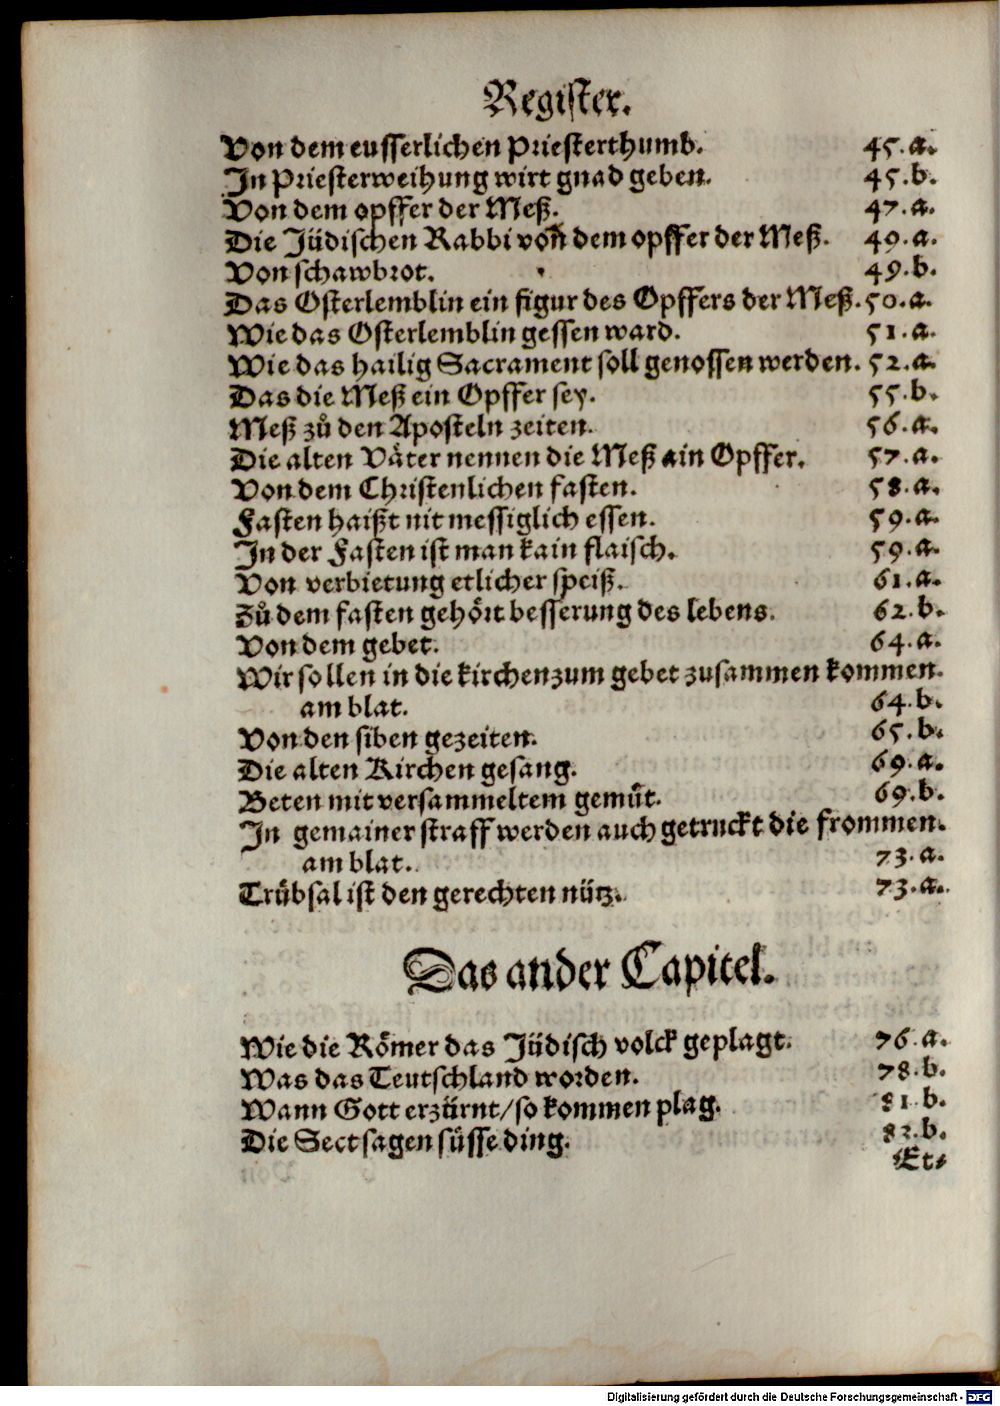 Register.
Von dem eusserlichen Priesterthumb. 45.a.
In Priesterweihung wirt gnad geben. 45.b.
Von dem opffer der Meß. 47.a.
Die Jüdischen Rabbi von dem opffer der Meß. 49.a.
Von schawbrot. 49.b.
Das Osterlemblin ein figur des Opffers der Meß. 50.a.
Wie das Osterlemblin gessen ward. 51.a.
Wie das hailig Sacrament soll genossen werden. 52.a.
Das die Meß ein Opffer sey. 55.b.
Meß zů den Aposteln zeiten. 56.a.
Die alten Väter nennen die Meß ain Opffer. 57.a.
Von dem Christenlichen fasten. 58.a.
Fasten haißt nit messiglich essen. 59.a.
In der Fasten ist man kain flaisch. 59.a.
Von verbietung etlicher speiß. 61.a.
Zů dem fasten gehört besserung des lebens. 62.b.
Von dem gebet. 64.a.
Wir sollen in die kirchen zum gebet zusammen kommen.
am blat. 64.b.
Von den siben gezeiten. 65.b.
Die alten Kirchen gesang. 69.a.
Beten mit versammeltem gemüt. 69.b.
In gemainer straff werden auch getruckt die frommen.
am blat. 73.a.
Trübsal ist den gerechten nütz. 73.a.
Das ander Capitel.
Wie die Römer das Jüdisch volck geplagt. 76.a.
Was das Teutschland worden. 78.b.
Wann Gott erzürnt/so kommen plag. 81.b.
Die Sect sagen süsse ding. 82.b.
Et⸗
Digitalisierung gefördert durch die Deutsche Forschungsgemeinschaft - DFG